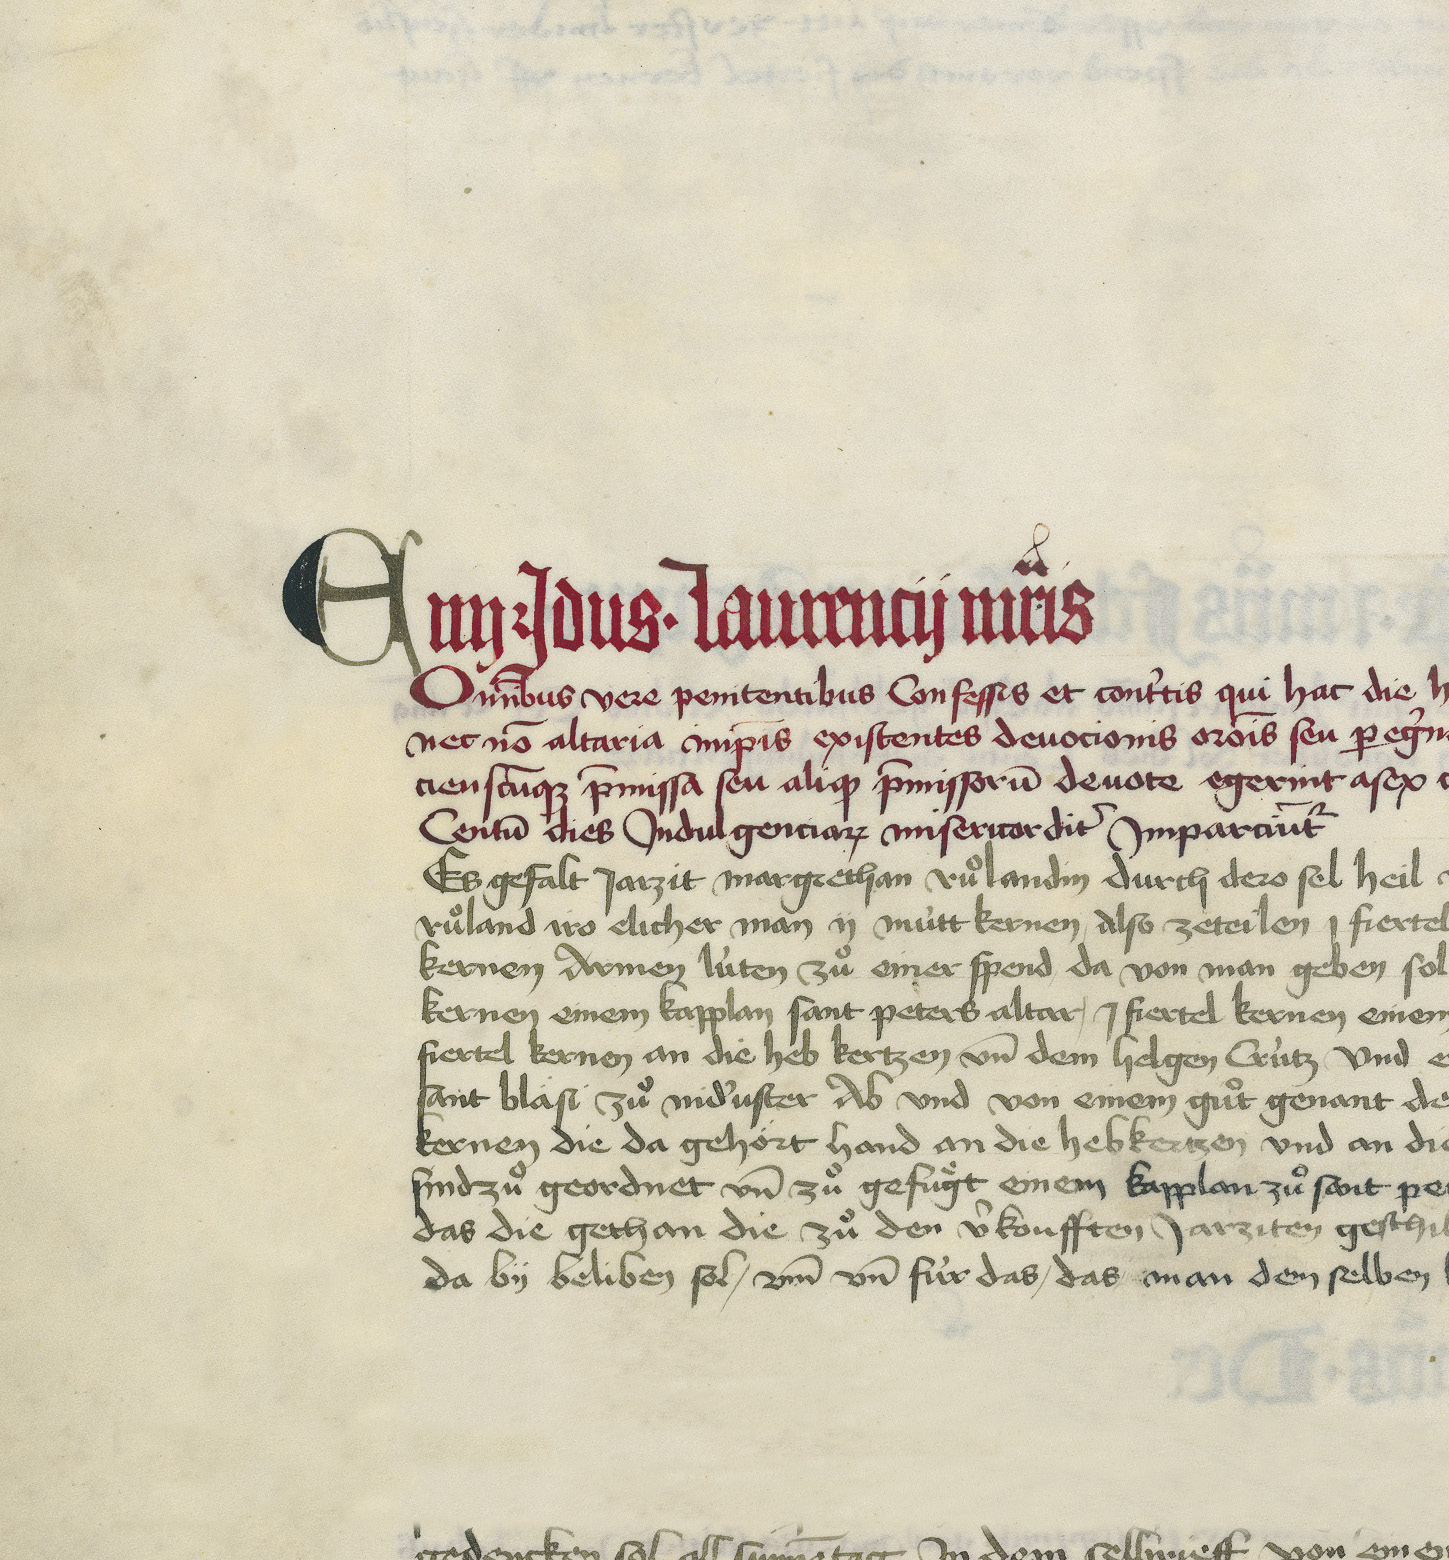 E iiij Idus. Laurencij mr̄is
Om̄ibus vere penitentibus Confessis et contͬtis qui hac die h
nec nō altaria īmp̄is existentes deuocionis orōis seu peg̉n
ciensc̄uqꝫ p̄missa seu aliqꝫ p̄missorū deuote egerint asex
Centū dies Indulgenciaꝝ misericordit᷑ Imparciūt᷑
Es gefalt Jarzit margrethan růlandin durch dero sel heil
růland iro elicher man ij mútt kernen / also zeteilen j fiertel
kernen Armen lúten zů einer spend da von man geben sol
kernen einem kapplan sant peters altar / j fiertel kernen einem
fiertel kernen an die heb kertzen vn̄ dem helgen Crútz Vnd e
sant bläsi zů nid᷑uster Ab vnd von einem gůt genant de
kernen die da gehört hand an die hebkertzen vnd an die
sind zů geordnet vn̄ zů gefůgt einem kapplan zů sant pet
das die gethan die zů den v᷑koufften Jarziten geschi
da bij beliben sol / vm̄ vn̄ fúr das / das man dem selben
gedencken sol all sunnētag In dem von einem